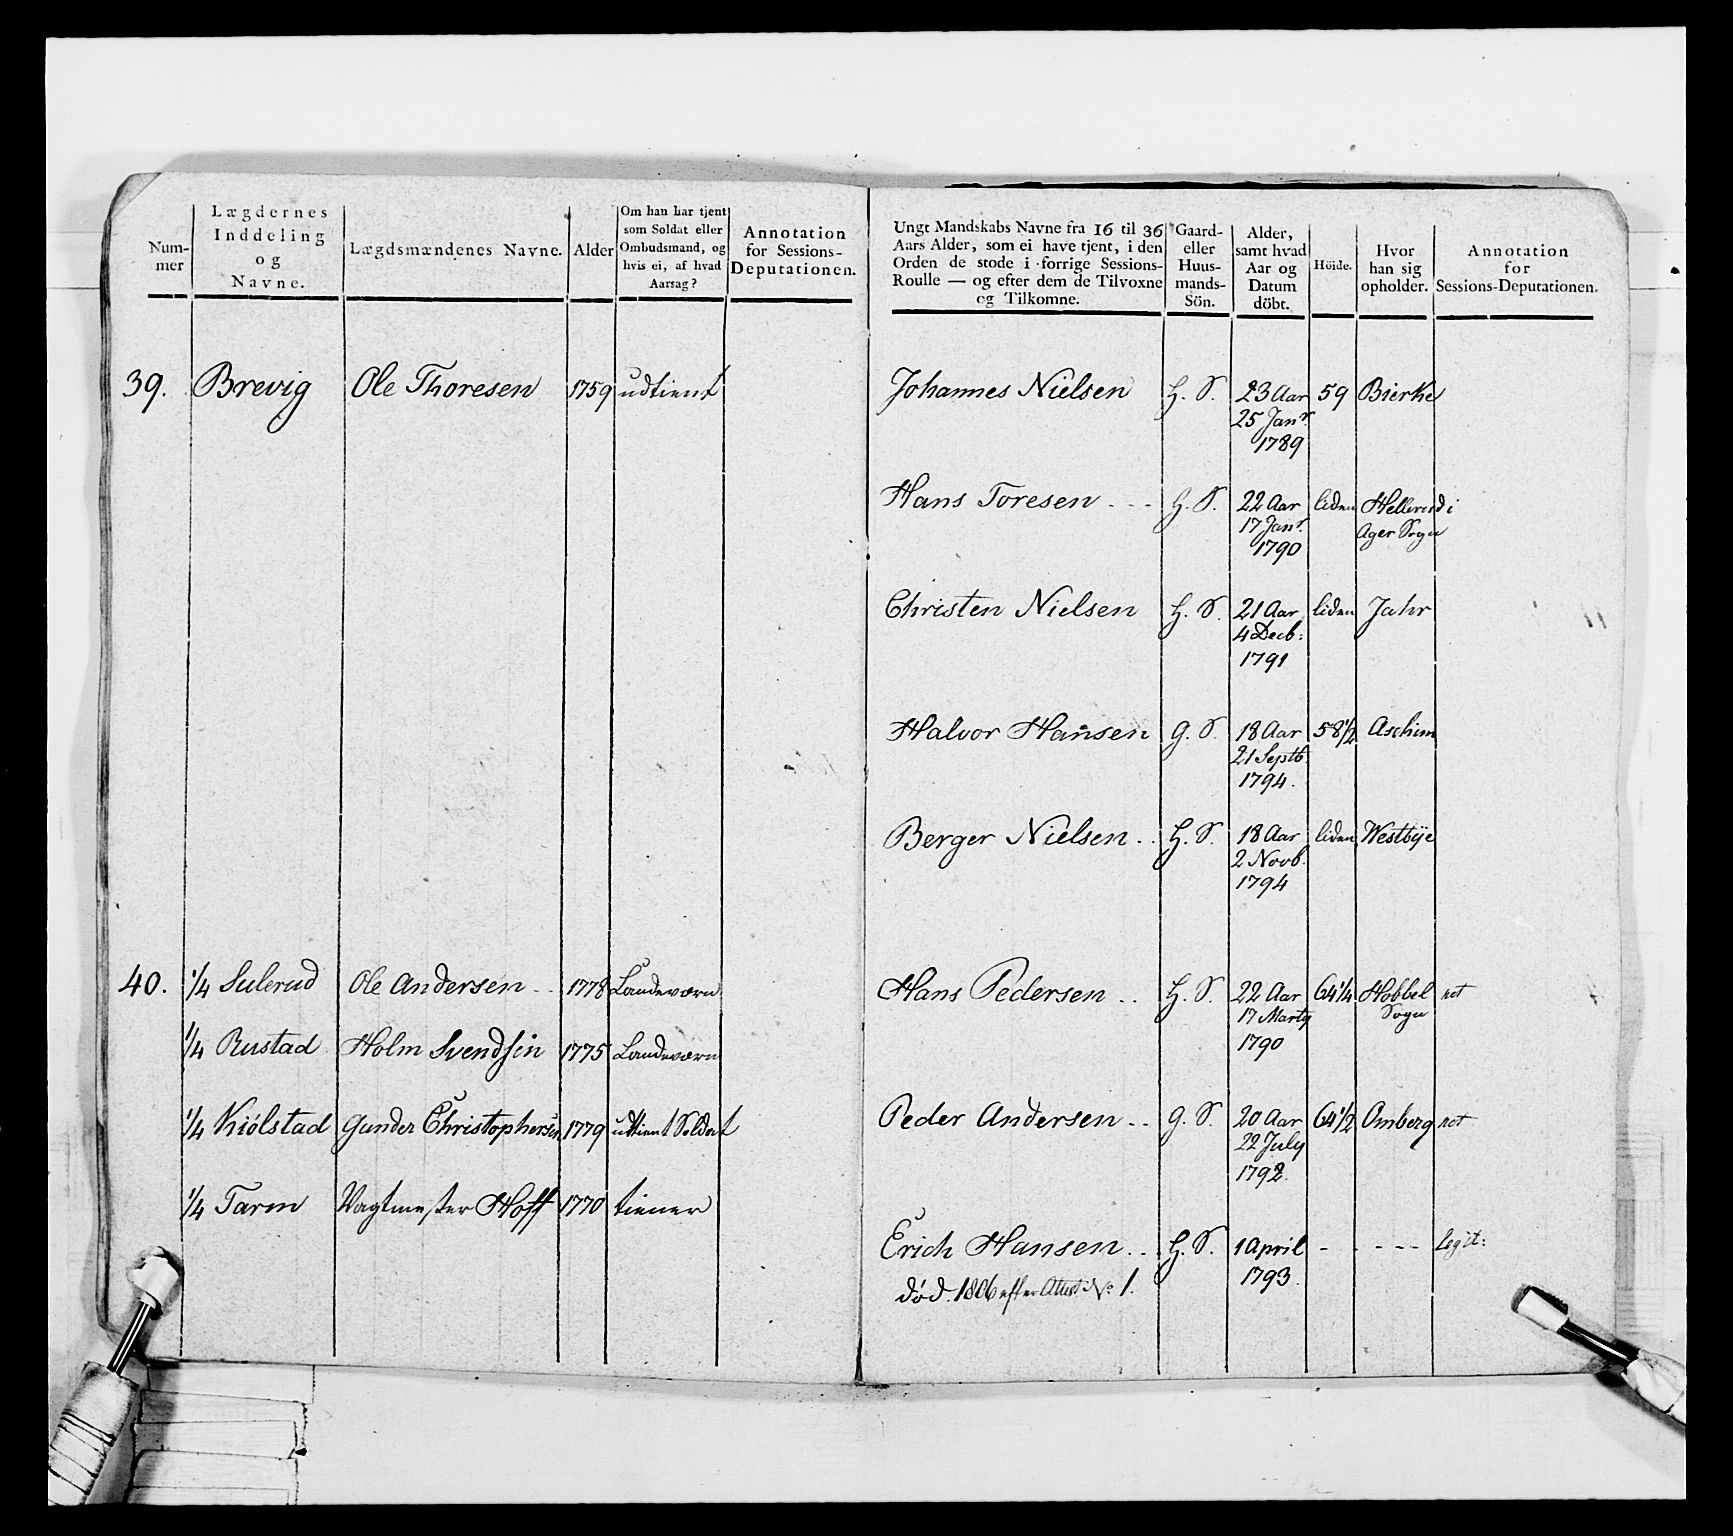 Num-
mer
Lægdernes
Inddeling
og
Navne.
Lægdsmændenes Navne.
Alder
Om han har tjent
som Soldat eller
Ombudsmand, og
hvis ei, af hvad
Aarsag?
Annotation
for Sessions-
Deputationen.
39. Brevig Ole Thoresen 1759 udtient
40. 1/4 Sulerud Ole Andersen .. 1778 Landeværn
1/4 Rustad Holm Svendsen 1775 Landeværn
1/4 Kiölstad Gunder Christophersen 1779 udtient Soldat
1/4 Tarm Vagtmester Hoff 1770 tiener
Ungt Mandskabs Navne fra 16 til 36
Aars Alder, som ei have tjent, i den
Orden de stode i forrige Sessions-
Roulle — og efter dem de Tilvoxne
og Tilkomne.
Gaard-
eller
Huus-
mands-
Sön.
Alder,
samt hvad
Aar og
Datum
döbt.
Höide.
Hvor
han sig
opholder.
Annotation
for
Sessions-Deputationen.
Johannes Nielsen H. S. 23 Aar 59 Bierke
25 Janr.
1789
Hans Toresen - - - H. S. 22 Aar liden Hellerud i
17 Janr. Ager Sogn
1790
Christen Nielsen H. S. 21 Aar liden Jahr
4 Decb:
1791
Halvor Hansen G. S. 18 Aar 58 1/2 Aschim
21 Septb.
1794.
Berger Nielsen .. H. S. 18 Aar liden Westbye
2 Novb.
1794
Hans Pedersen .. H. S. 22 Aar 64 1/4 Hobbel not
17 Marty Sogn
1790
Peder Andersen .. G. S. 20 Aar 64 1/2 Omberg not
22 July
1792.
Erich Hansen .. H. S. 1 April - - - - - legit:
död. 1806 efter Attest No 1. 1793.